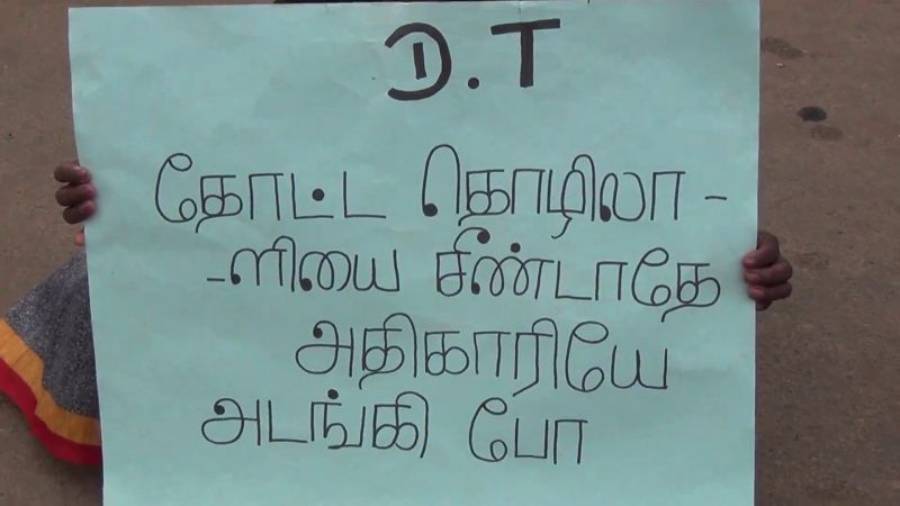 D.T
தோட்ட தொழிலா -
-ளியை சீண்டாதே
அதிகாரியே
அடங்கி போ